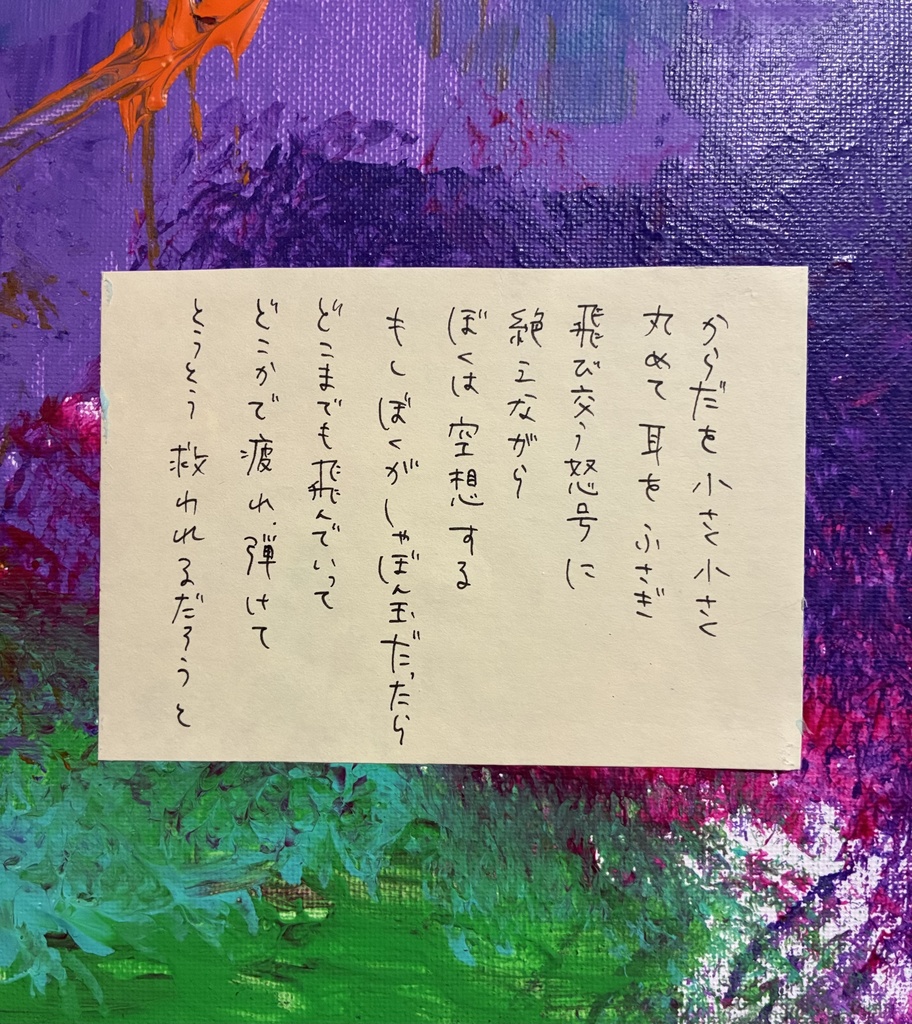 からだを小さく小さく
丸めて耳をふさぎ
飛び交う怒号に
絶えながら
ぼくは空想する
もしぼくがしゃぼん玉だったら
どこまでも飛んでいって
どこかで疲れ弾けて
とうとう救われるだろうと